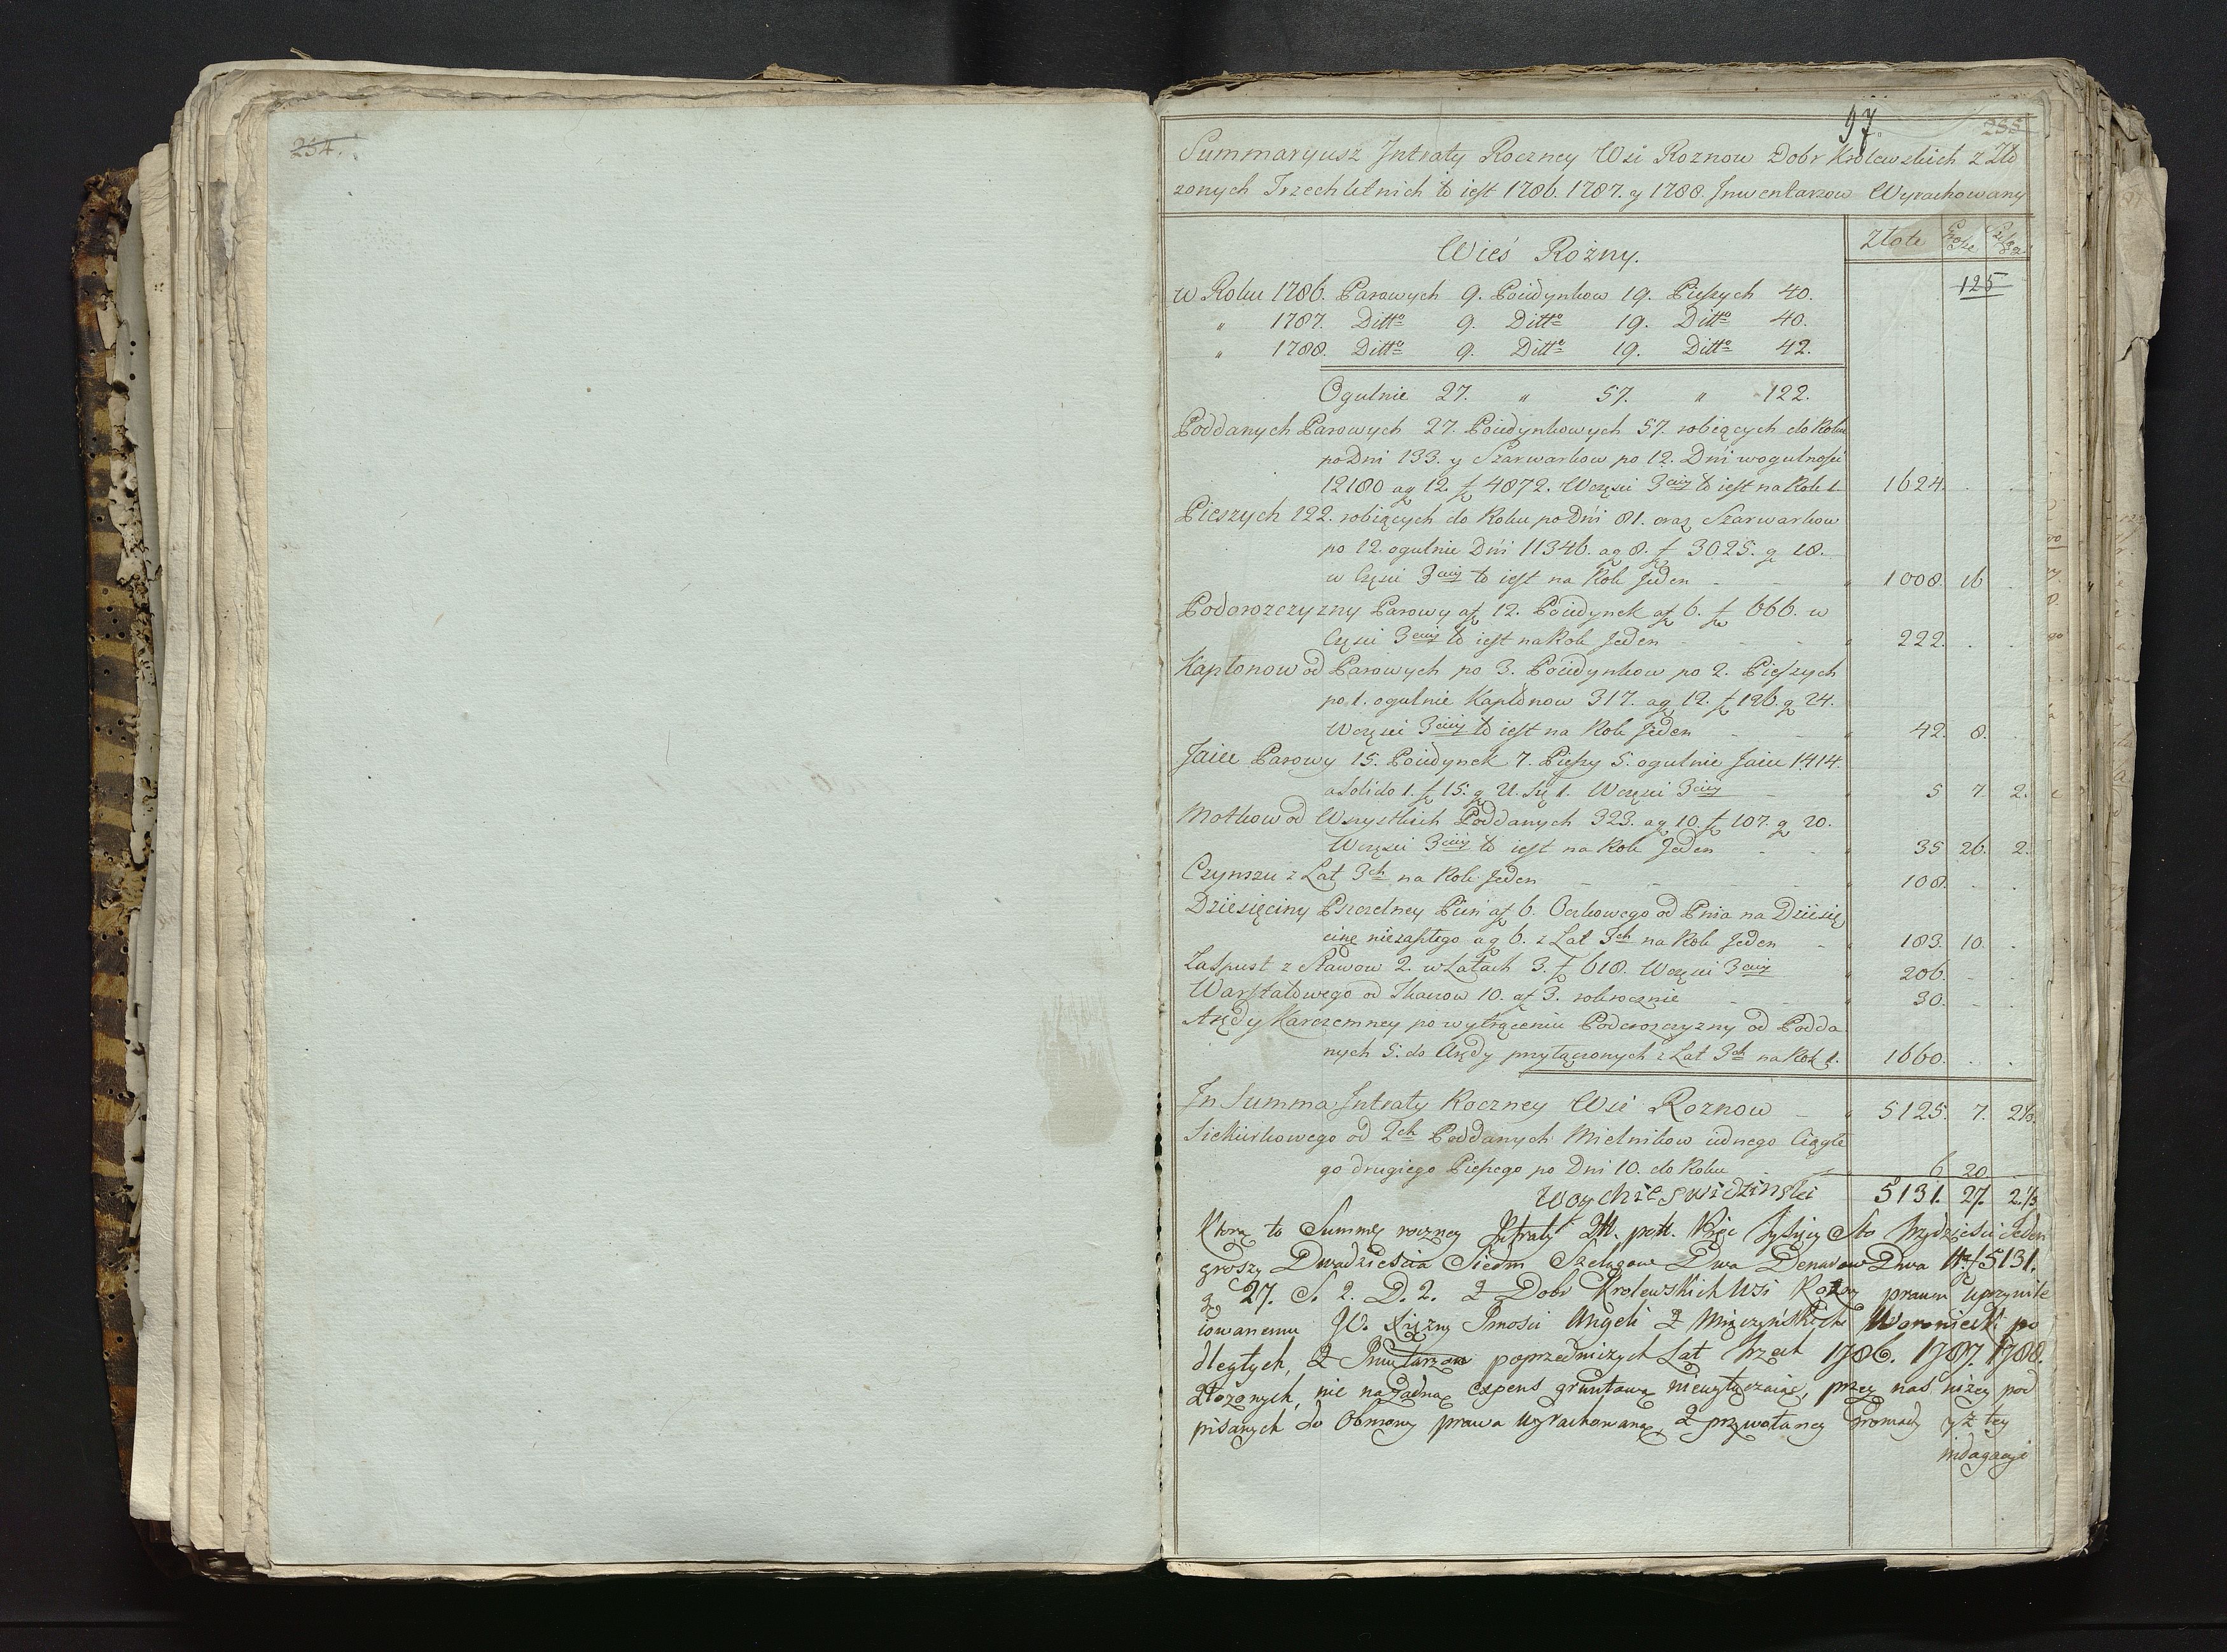 234.
97.
235
Summaryusz Intraty Roczney Wsi Roznow Dobr Krolewskich z Zło
zonych Trzechletnich to iest 1786. 1787. y 1788. Inwentarzow Wyrachowany
Złote Grosze
Wieś Rożny.
125
w Roku 1786. Parowych 9. Poiedynkow 19. Pieszych 40.
" 1787. Ditto 9. Ditto 19. Ditto 40.
" 1788. Ditto 9. Ditto 19. Ditto 42.
Ogulnie 27. " 57. " 122.
Poddanych Parowych 27. Poiedynkowych 57. robiących do Roku
po Dni 133. y Szarwarkow po 12. Dni w ogulnosci
12180 a g 12. f 4872. W części 3ciey to iest na Rok 1. 1624. . .
Pieszych 122. robiących do Roku po Dni 81. oraz Szarwarkow
po 12. ogulnie Dni 11346. a g 8. f 3025. g 18.
w Części 3ciey to iest na Rok Jeden - - " 1008. 16 .
Podorozczyzny Parowy a f 12. Poiedynek a f 6. f 666. w
Części 3ciey to iest na Rok Jeden - - " 222. . .
Kapłonow od Parowych po 3. Poiedynkow po 2. Pieszych
po 1. ogulnie Kapłonow 317. a g 12. f 126. g 24.
W części 3ciey to iest na Rok Jeden - - " 42. 8. .
Jaiec Parowy 15. Poiedynek 7. Pieszy 5. ogulnie Jaiec 1414.
a solido 1. f 15. g 21. Szę 1. W części 3ciey - " 5 7 2.
Motkow od Wszystkich Poddanych 323. a g 10. f 107. g 20.
W części 3ciey to iest na Rok Jeden - - " 35 26. 2.
Czynszu z Lat 3ch na Rok Jeden - - - " 108. . .
Dziesięciny Pszczelney Pień a f 6. Oczkowego od Pnia na Dziesię
cinę niezaszłego a g 6. z Lat 3ch na Rok Jeden - " 183. 10. .
Za Spust z Stawow 2. w Latach 3. f 618. W części 3ciey " 206. - -
Warsztatowego od Tkaczow 10. a f 3. rok rocznie - - " 30. - -
Arędy Karczemney po wytrąceniu Podorozczyzny od Podda
nych 5. do Arędy przyłączonych z Lat 3ch na Rok 1. 1660. . .
In Summa Intraty Roczney Wsi Roznow - " 5125. 7. 2 1/3.
Siekierkowego od 2ch Poddanych Mielnikow iednego Ciągłe
go drugiego Pieszego po Dni 10. do Roku - " 6 20 -
5131. 27. 2. 1/3
Ktorą to Summę roczney Intraty Zł. pol. Pięć Tysięcy Sto Trzydziesci Jeden
groszy Dwadziescia Siedm Szelągow Dwa Denarow Dwa f 5131.
g 27. S. 2. D. 2. z Dobr Krolewskich Wsi Rożny prawem uprzywile
iowanemu JW. Xiężny Jmosci Angeli z Miączyńskich Woronieck po
dległych, z Inwentarzow poprzedniczych Lat trzech 1786. 1787. 1788.
złożonych, nic na żadną expens gruntową niewytrącaiąc, przez nas niżey pod
pisanych do Obmowy prawa wyrachowaną, z przywołaney Gromady y z tey
indagacyi